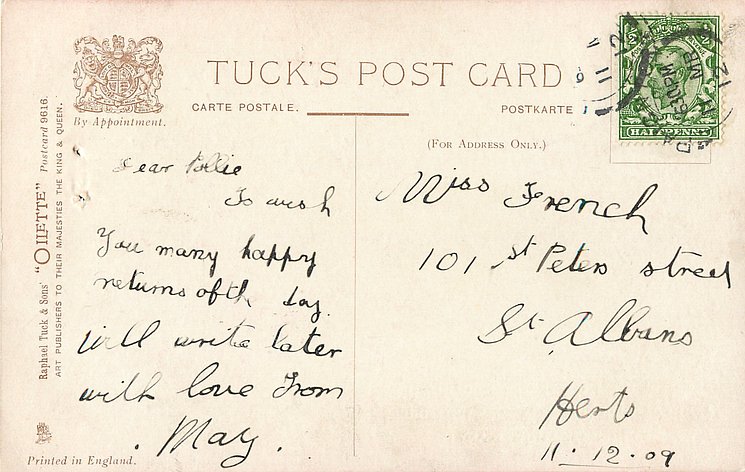 TUCK'S POST CARD
CARTE POSTALE.
POSTKARTE
By Appointment.
(FOR ADDRESS ONLY.)
HALFPENNY
Raphael Tuck & Sons' "OILETTE" Postcard 9616.
ART PUBLISHERS TO THEIR MAJESTIES THE KING & QUEEN.
Dear Pollie
To wish
You many happy
returns of th day
will write later
with love From
. May.
Miss French
101 St Peters street
St Albans
Herts
11.12.09
Printed in England.